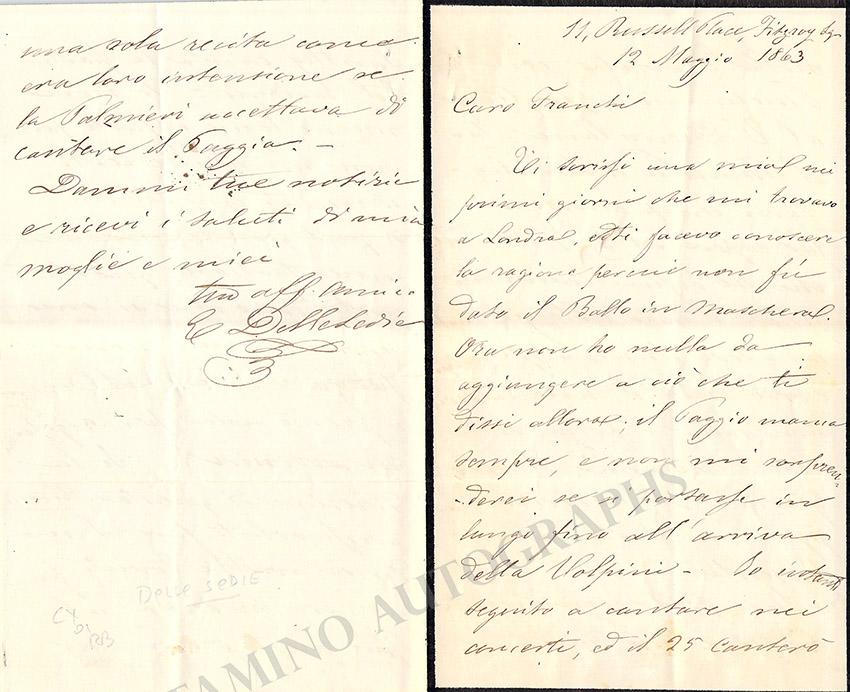 11, Russell Place, Fitzroy Sq.
12 Maggio 1863
Caro Franchi
Ti scrissi una mia nei
primi giorni che mi trovavo
a Londra, e ti facevo conoscere
la ragione perchè non fù
dato il Ballo in Maschera.
Ora non ho nulla da
aggiungere a ciò che ti
dissi allora; il Paggio manca
sempre, e non mi sorpren-
-derei se si portasse in
lungo fino all'arrivo
della Volpini - Io intanto
seguito a cantare nei
concerti, ed il 25 canterò
una sola recita come
era loro intensione se
la Palmieri accettava di
cantare il Paggio. -
Dammi tue notizie
e ricevi i saluti di mia
moglie e miei
tuo aff. amico
E Delle Sedie
DELLE SEDIE
TAMINO AUTOGRAPHS